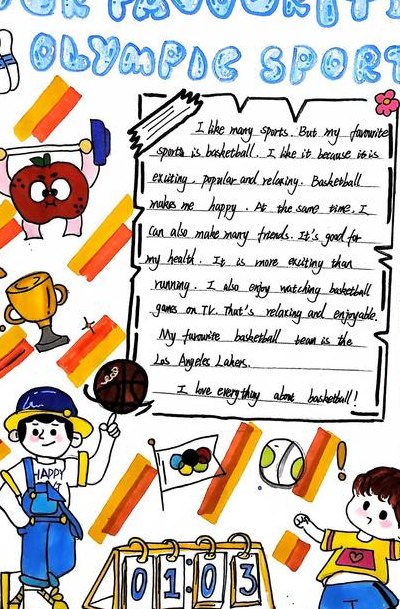 OUR FAVOURITE
OLYMPIC SPORT
I like many sports. But my favourite
sports is basketball. I like it because it is
exciting, popular and relaxing. Basketball
makes me happy. At the same time, I
can also make many friends. It's good for
my health. It is more exciting than
running. I also enjoy watching basketball
games on TV. That's relaxing and enjoyable.
My favourite basketball team is the
Los Angeles Lakers.
I love everything about basketball!
HAPPY
01:03